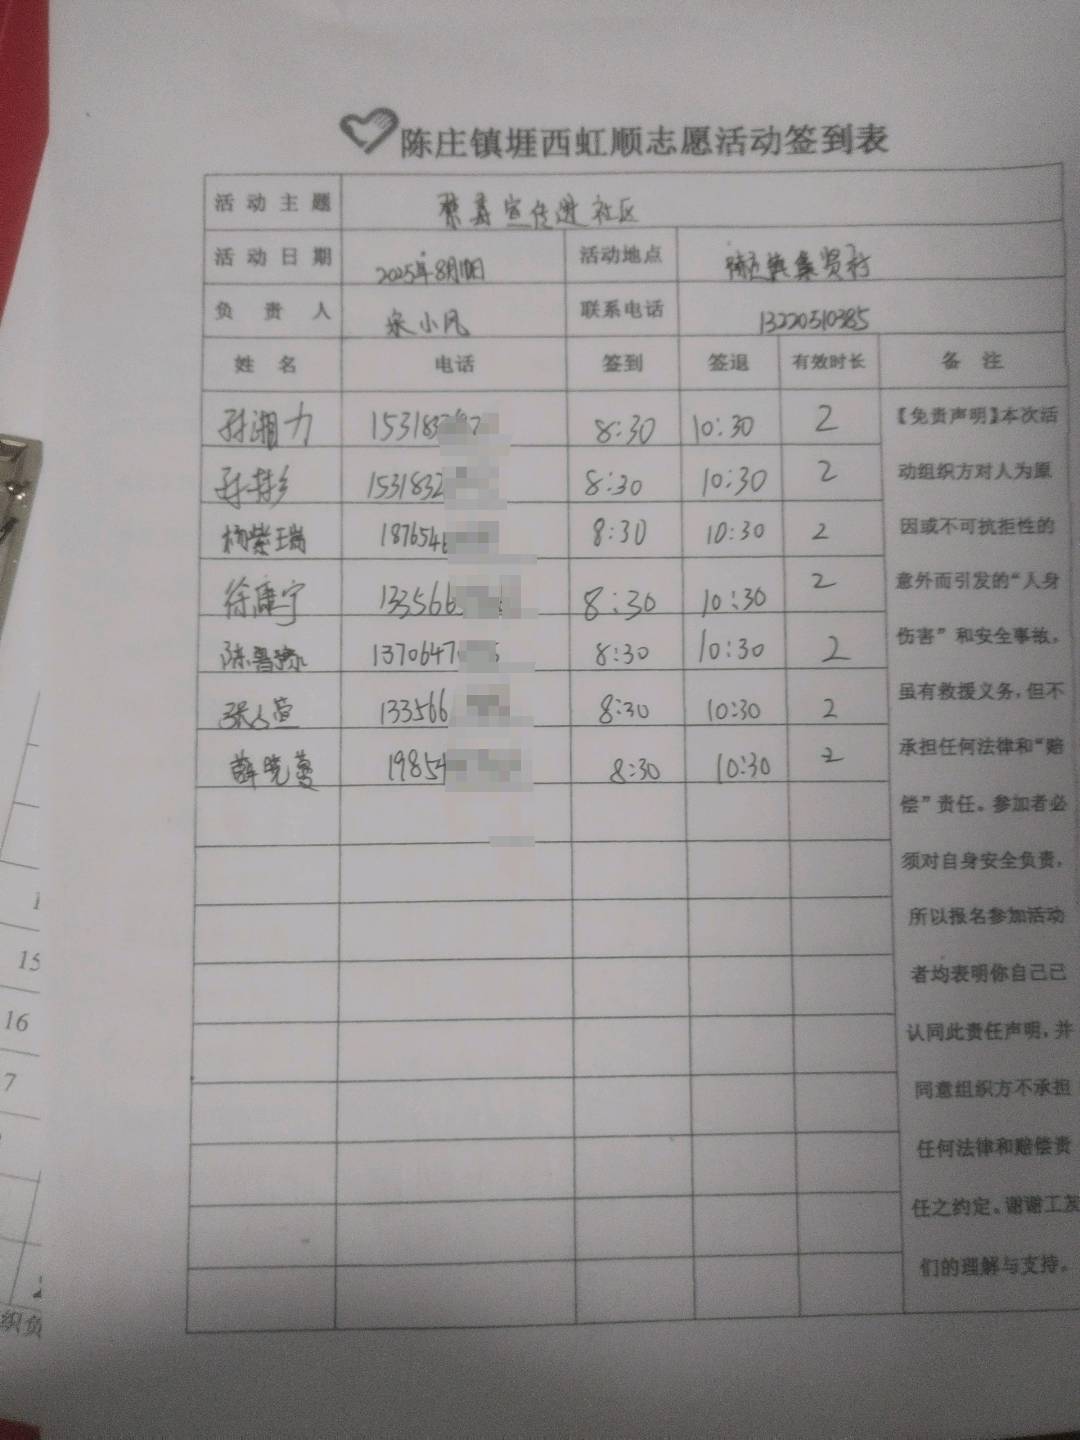 陈庄镇堐西虹顺志愿活动签到表
活动主题 禁毒宣传进社区
活动日期 2025年8月 日 活动地点 陈庄镇集贤村
负责人 小风 联系电话 13220510385
姓名 电话 签到 签退 有效时长 备注
孙湘力 153183 8:30 10:30 2
孙 1531832 8:30 10:30 2
杨紫瑞 187654 8:30 10:30 2
徐康宁 133566 8:30 10:30 2
陈 1370647 8:30 10:30 2
张 萱 133566 8:30 10:30 2
薛晓蔓 19854 8:30 10:30 2
【免责声明】本次活
动组织方对人为原
因或不可抗拒性的
意外而引发的“人身
伤害”和安全事故,
虽有救援义务,但不
承担任何法律和“赔
偿”责任。参加者必
须对自身安全负责,
所以报名参加活动
者均表明你自己已
认同此责任声明,并
同意组织方不承担
任何法律和赔偿责
任之约定。谢谢工友
们的理解与支持。
1
15
16
7
织负